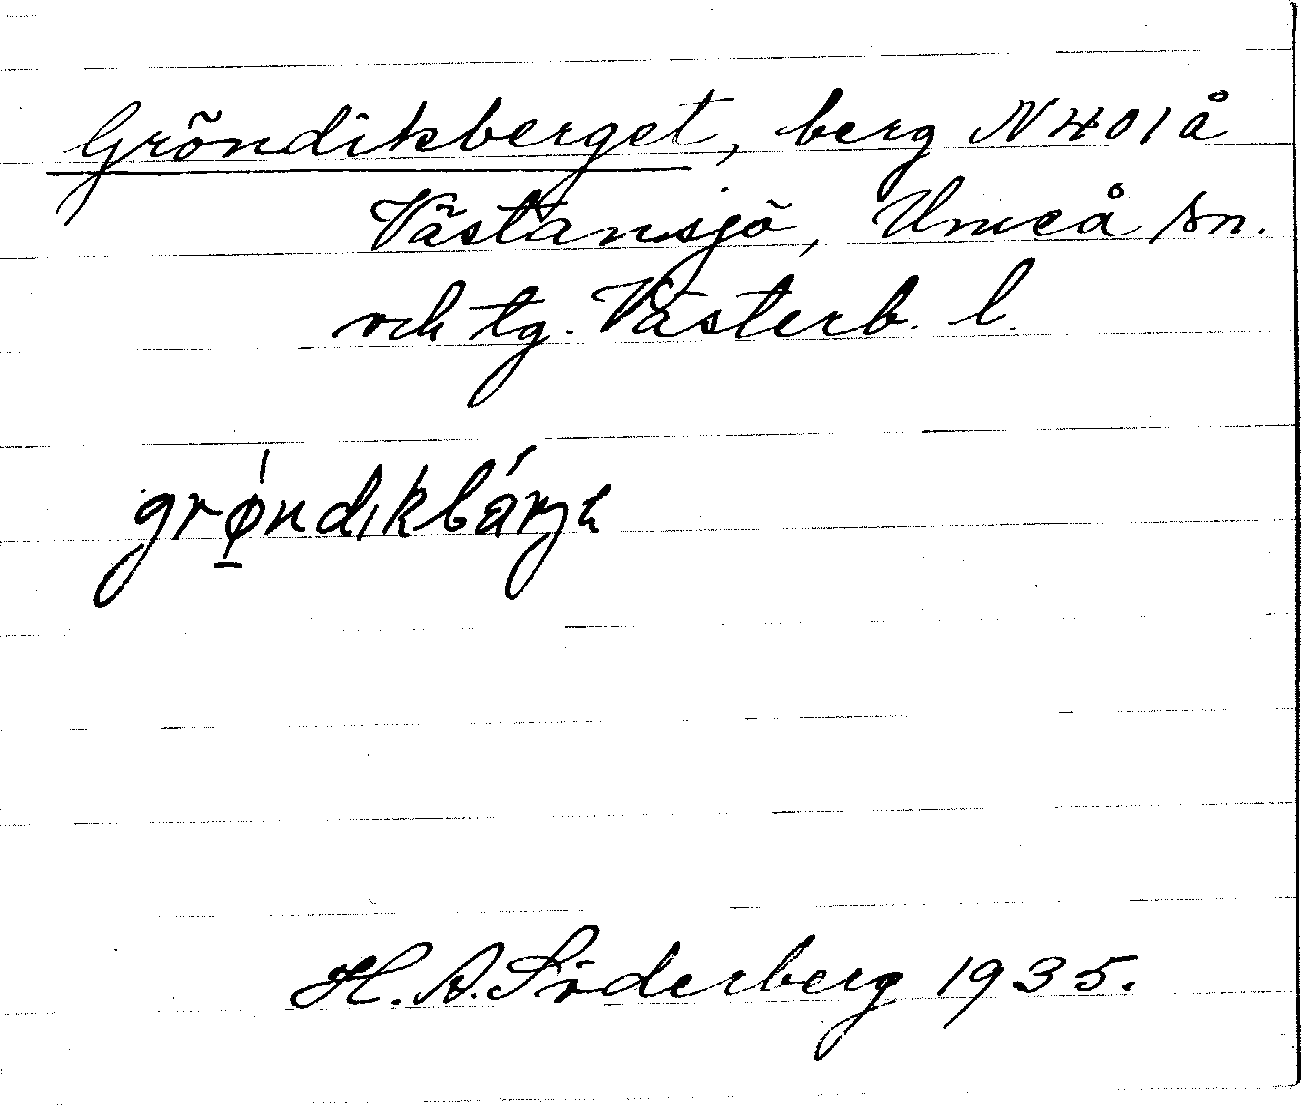 Gröndikberget, berg N 401 å
Västansjö, Umeå sn.
och tg. Västerb. l.
grǿ̱ndıkbárjɛ
H. A. Söderberg 1935.